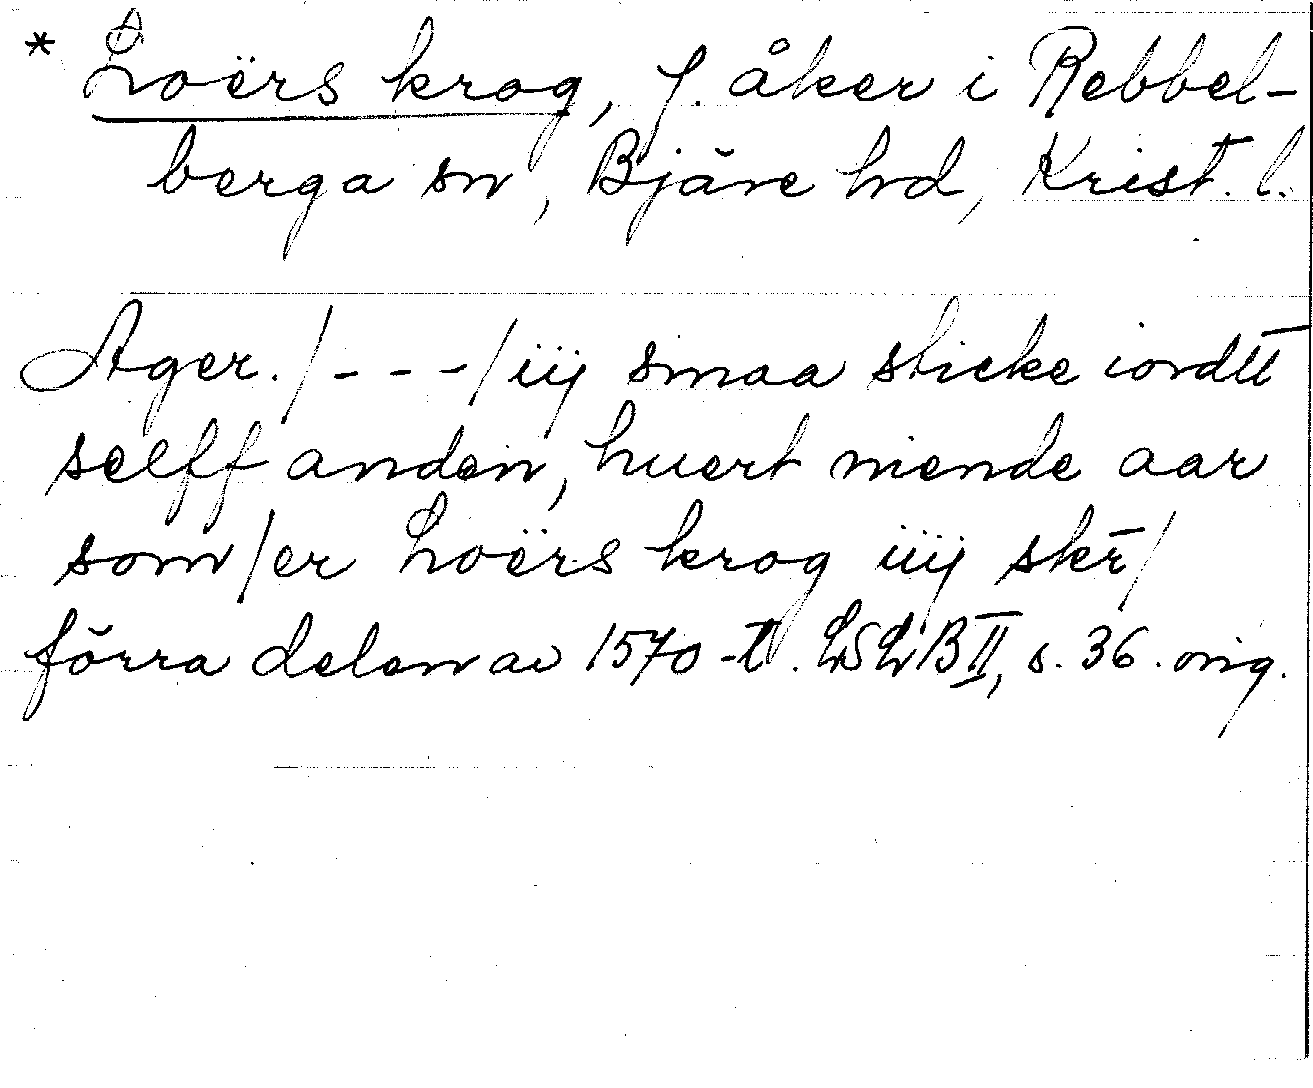 * Loërs krog, f. åker i Rebbel-
berga sn, Bjäre hd, Krist. l.
Ager. /- - -/ iij smaa sticke iordtt
selff anden, huert niende aar
som/er Loërs krog iiij skr̄/
förra delen av 1570-t. LSLB II, s. 36. orig.